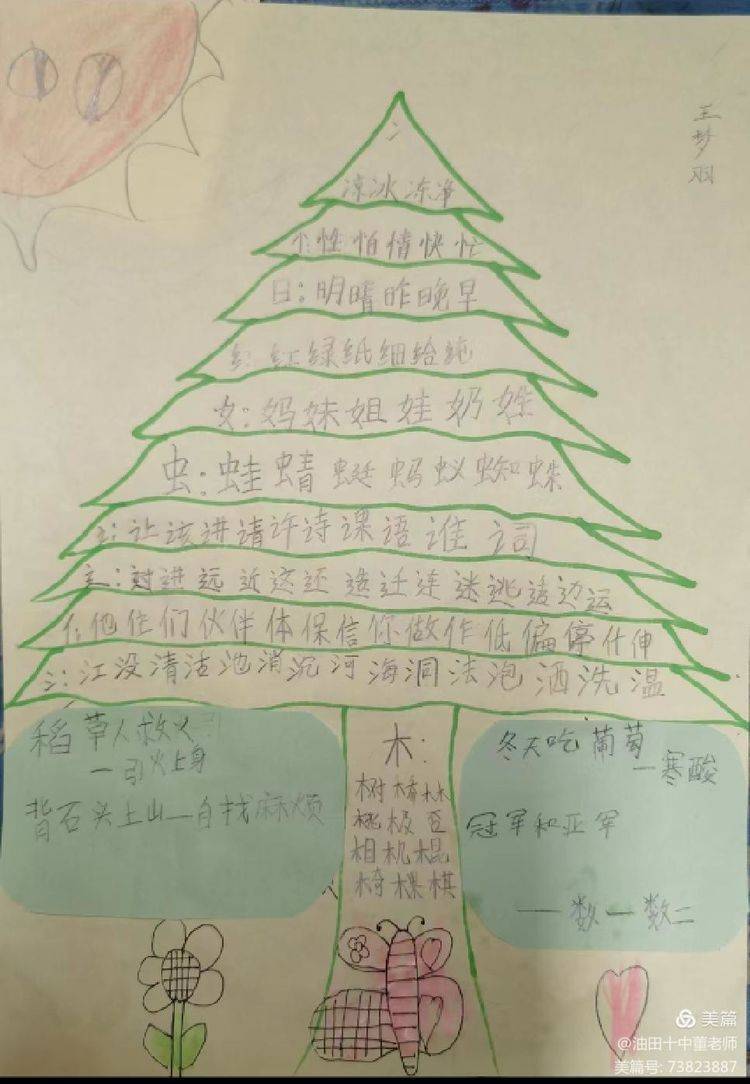 王梦羽
冫
凉冰冻净
忄:性怕情快忙
日:明晴昨晚早
纟:红绿纸细给纯
女:妈妹姐娃奶姓
虫:蛙蜻蜓蚂蚁蜘蛛
讠:让该进请许诗课语谁词
辶:过进远近这还造迁连迷逃适边运
亻:他住们伙伴体保信你做作低偏停什伸
氵:江没清活池消沉河海洞法泡洒洗温
稻草人救火
—引火上身
背石头上山—自找麻烦
木:
树椅林
桃极
相机棍
椅棵棋
冬天吃葡萄
—寒酸
冠军和亚军
——数一数二
美篇
@油田十中董老师
美篇号: 73823887